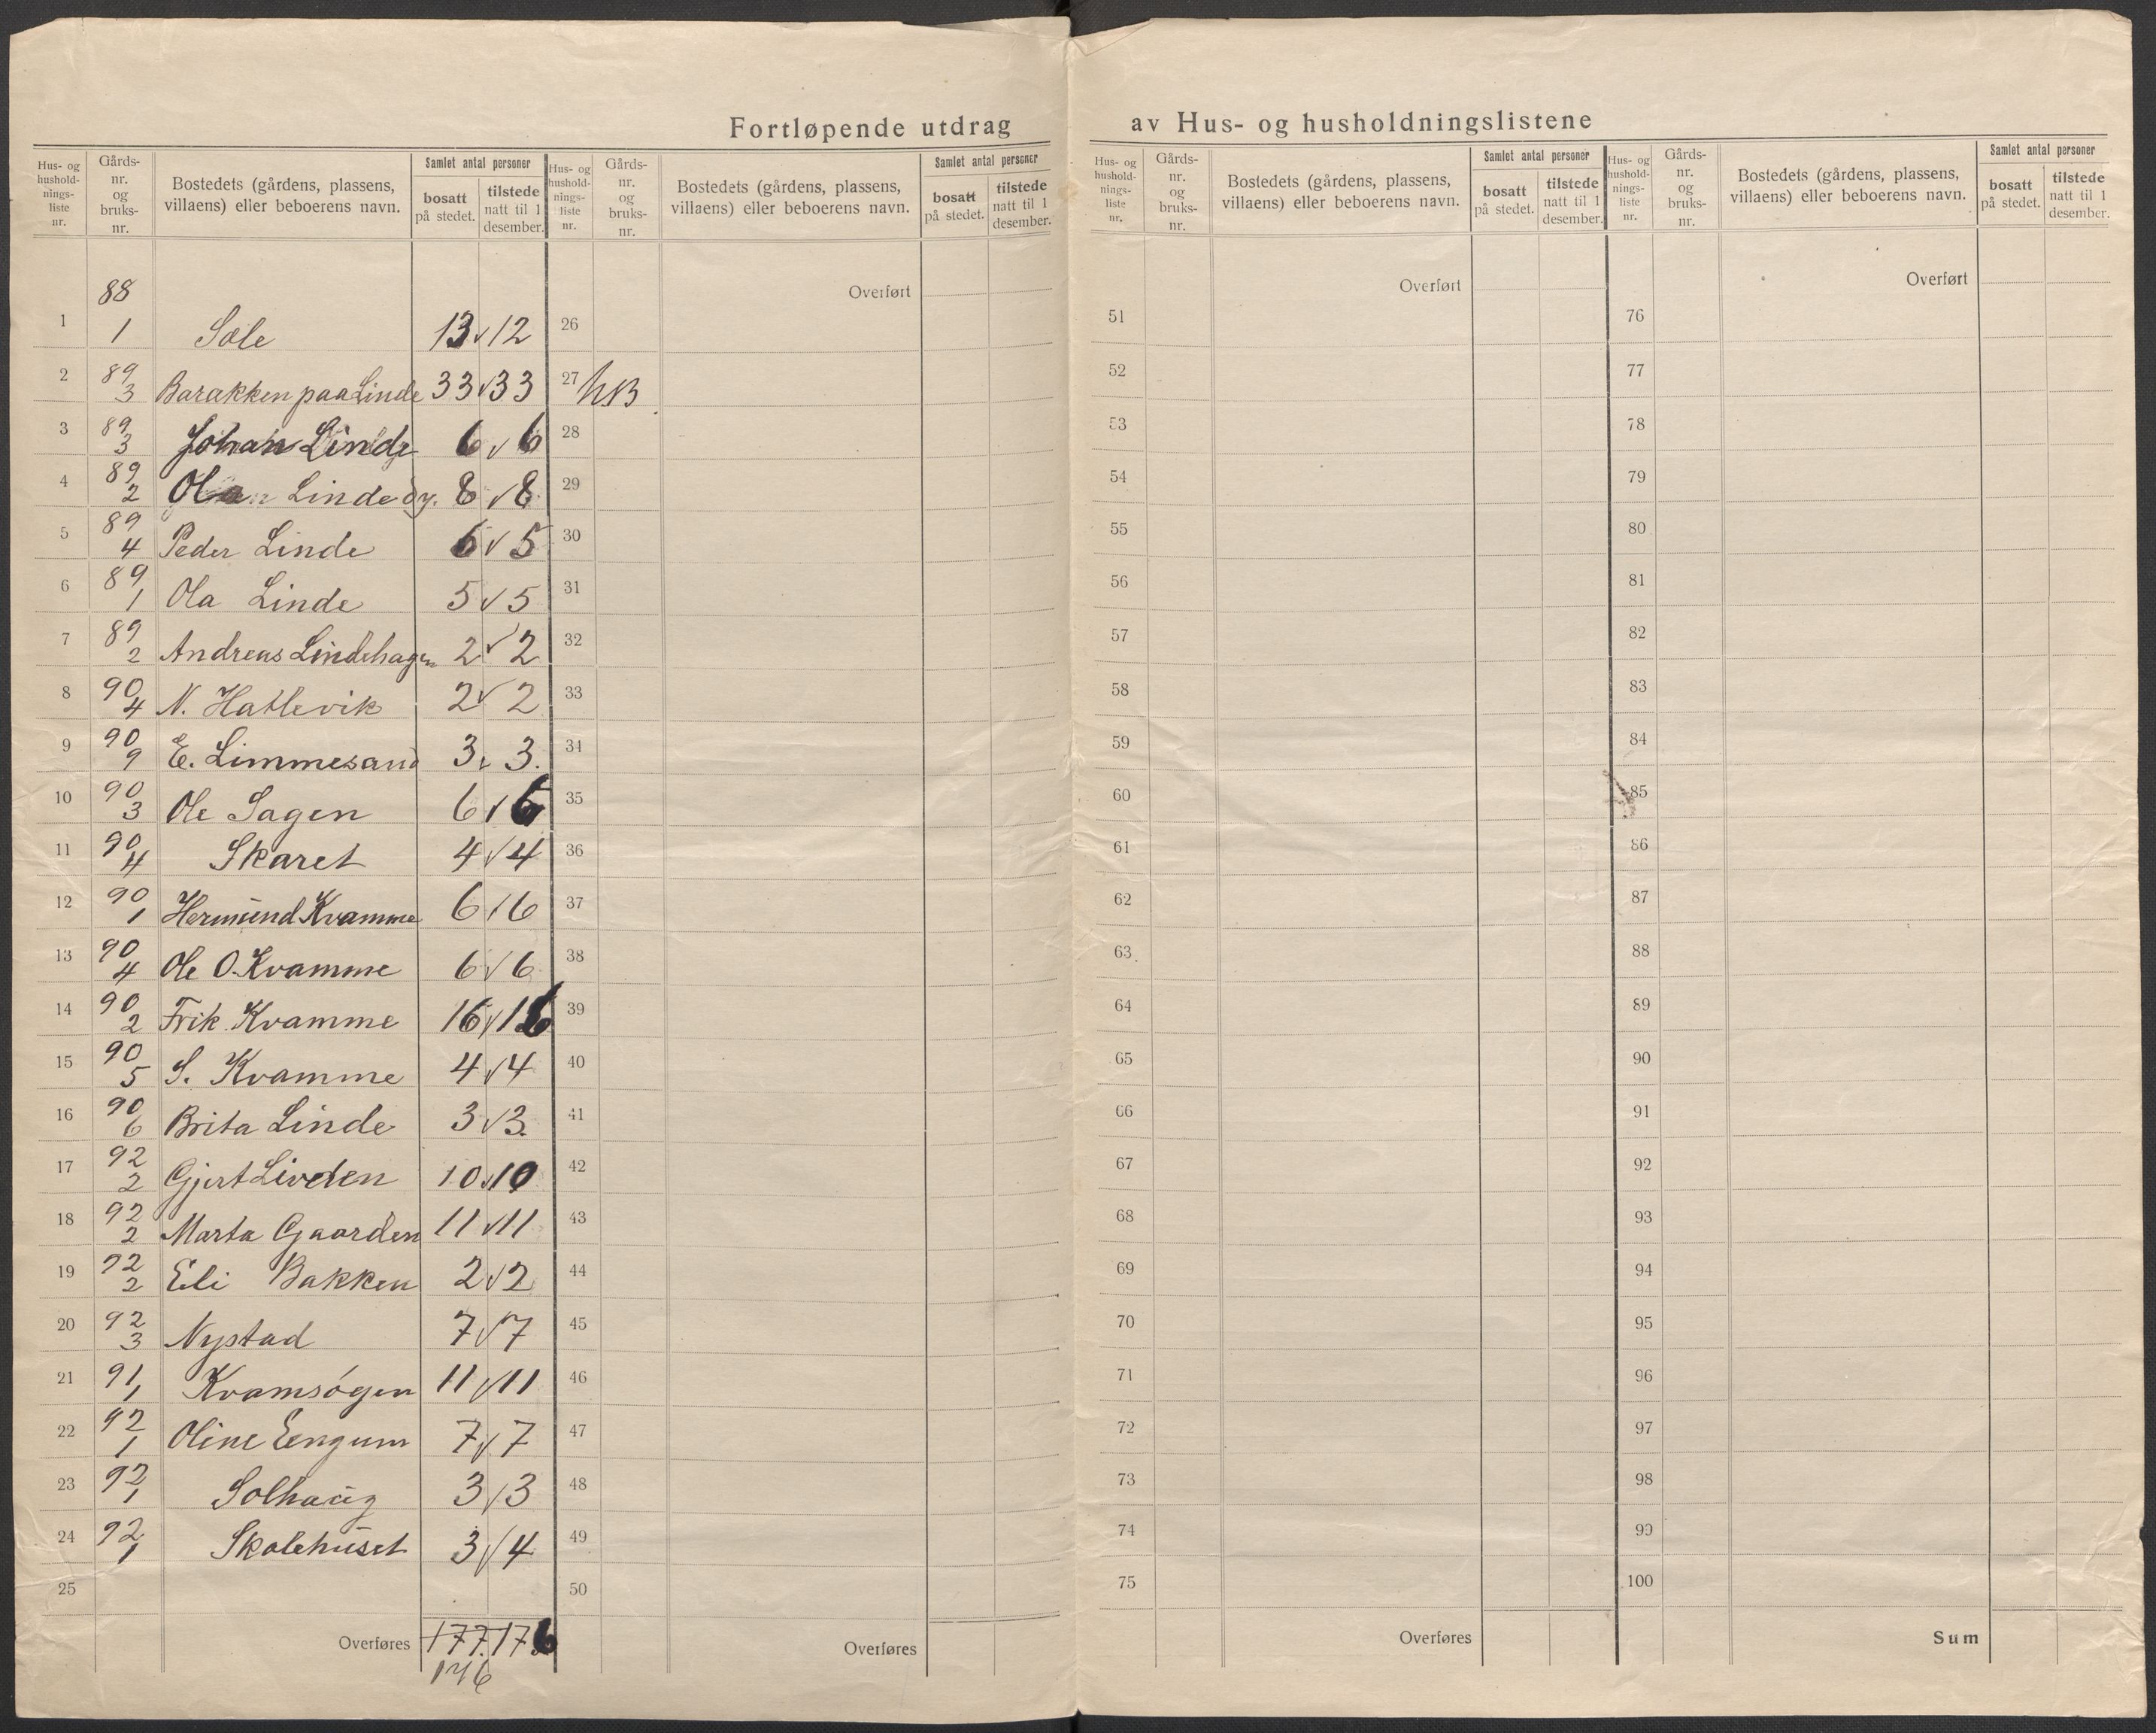 Fortløpende utdrag av Hus- og husholdningslistene
Hus- og hushold-nings-liste nr. Gårds-nr. og bruks-nr. Bostedets (gårdens, plassens, villaens) eller beboerens navn. Samlet antal personer bosatt på stedet. tilstede natt til 1 desember.
1 88 1 Sæle 13 v 12
2 89 3 Barakken paa Linde 33 v 33
3 89 3 Johan Linde 6 v 6
4 89 2 Linde dy. 8 v 8
5 89 4 Peder Linde 6 v 5
6 89 1 Ola Linde 5 v 5
7 89 2 Andreas Lindehagen 2 v 2
8 90 4 N. Hatlevik 2 v 2
9 90 9 E. Limmesand 3 v 3.
10 90 3 Ole Sagen 6 v 6
11 90 4 Skaret 4 v 4
12 90 1 Hermund Kvamme 6 v 6
13 90 4 Ole O. Kvamme 6 v 6
14 90 2 Frik. Kvamme 16 v 16
15 90 5 S. Kvamme 4 v 4
16 90 6 Brita Linde 3 v 3.
17 92 2 Gjert Livden 10 v 10
18 92 2 Marta Gaarden 11 v 11
19 92 2 Eli Bakken 2 v 2
20 92 3 Nystad 7 v 7
21 91 1 Kvamsøgen 11 v 11
22 92 1 Oline Eengum 7 v 7
23 92 1 Solhaug 3 v 3
24 92 1 Skolehuset 3 v 4
25
Overføres 177. 176
176
Hus- og hushold-nings-liste nr. Gårds-nr. og bruks-nr. Bostedets (gårdens, plassens, villaens) eller beboerens navn. Samlet antal personer bosatt på stedet. tilstede natt til 1 desember.
Overført
26
27
28
29
30
31
32
33
34
35
36
37
38
39
40
41
42
43
44
45
46
47
48
49
50
Overføres
Hus- og hushold-nings-liste nr. Gårds-nr. og bruks-nr. Bostedets (gårdens, plassens, villaens) eller beboerens navn. Samlet antal personer bosatt på stedet. tilstede natt til 1 desember.
Overført
51
52
53
54
55
56
57
58
59
60
61
62
63
64
65
66
67
68
69
70
71
72
73
74
75
Overføres
Hus- og hushold-nings-liste nr. Gårds-nr. og bruks-nr. Bostedets (gårdens, plassens, villaens) eller beboerens navn. Samlet antal personer bosatt på stedet. tilstede natt til 1 desember.
Overført
76
77
78
79
80
81
82
83
84
85
86
87
88
89
90
91
92
93
94
95
96
97
98
99
100
Sum